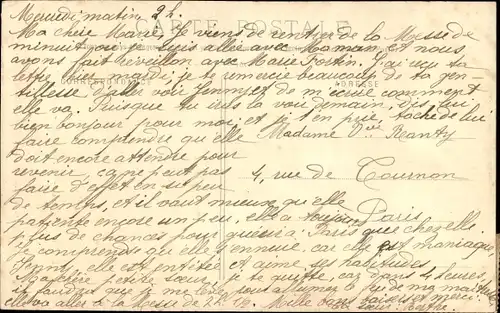 Mercredi matin 2h.
CARTE POSTALE
Ma chère Marie, Je viens de rentrer de la Messe de
minuit où je suis allée avec Maman et nous
avons fait réveillon avec Marie Fortin. J'ai reçu ta
lettre hier mardi je te remercie beaucoup de ta gen
ADRESSE
tillesse d'aller voir Jenny et de m'écrire comment
elle va. Puisque tu iras la voir demain, dis lui
bien bonjour pour moi, et je t'en prie, tâche de lui
faire comprendre qu'elle
Madame Vve Reanty
doit encore attendre pour
revenir, ça ne peut pas
4, rue de Tournon
faire d'effet en si peu
de temps, et il vaut mieux qu'elle
Paris
patiente encore un peu, elle a toujours
plus de chances pour guérir à Paris que chez elle.
Je comprends qu'elle s'ennuie, car elle est maniaque
Jenny, elle est entêtée et aime ses habitudes
petite sœur, je te quitte, car dans 4 heures,
il faudra que je me lève pour allumer le feu de ma
elle va aller à la Messe de Mille bons baisers et merci.
Ta sœur, Marthe.